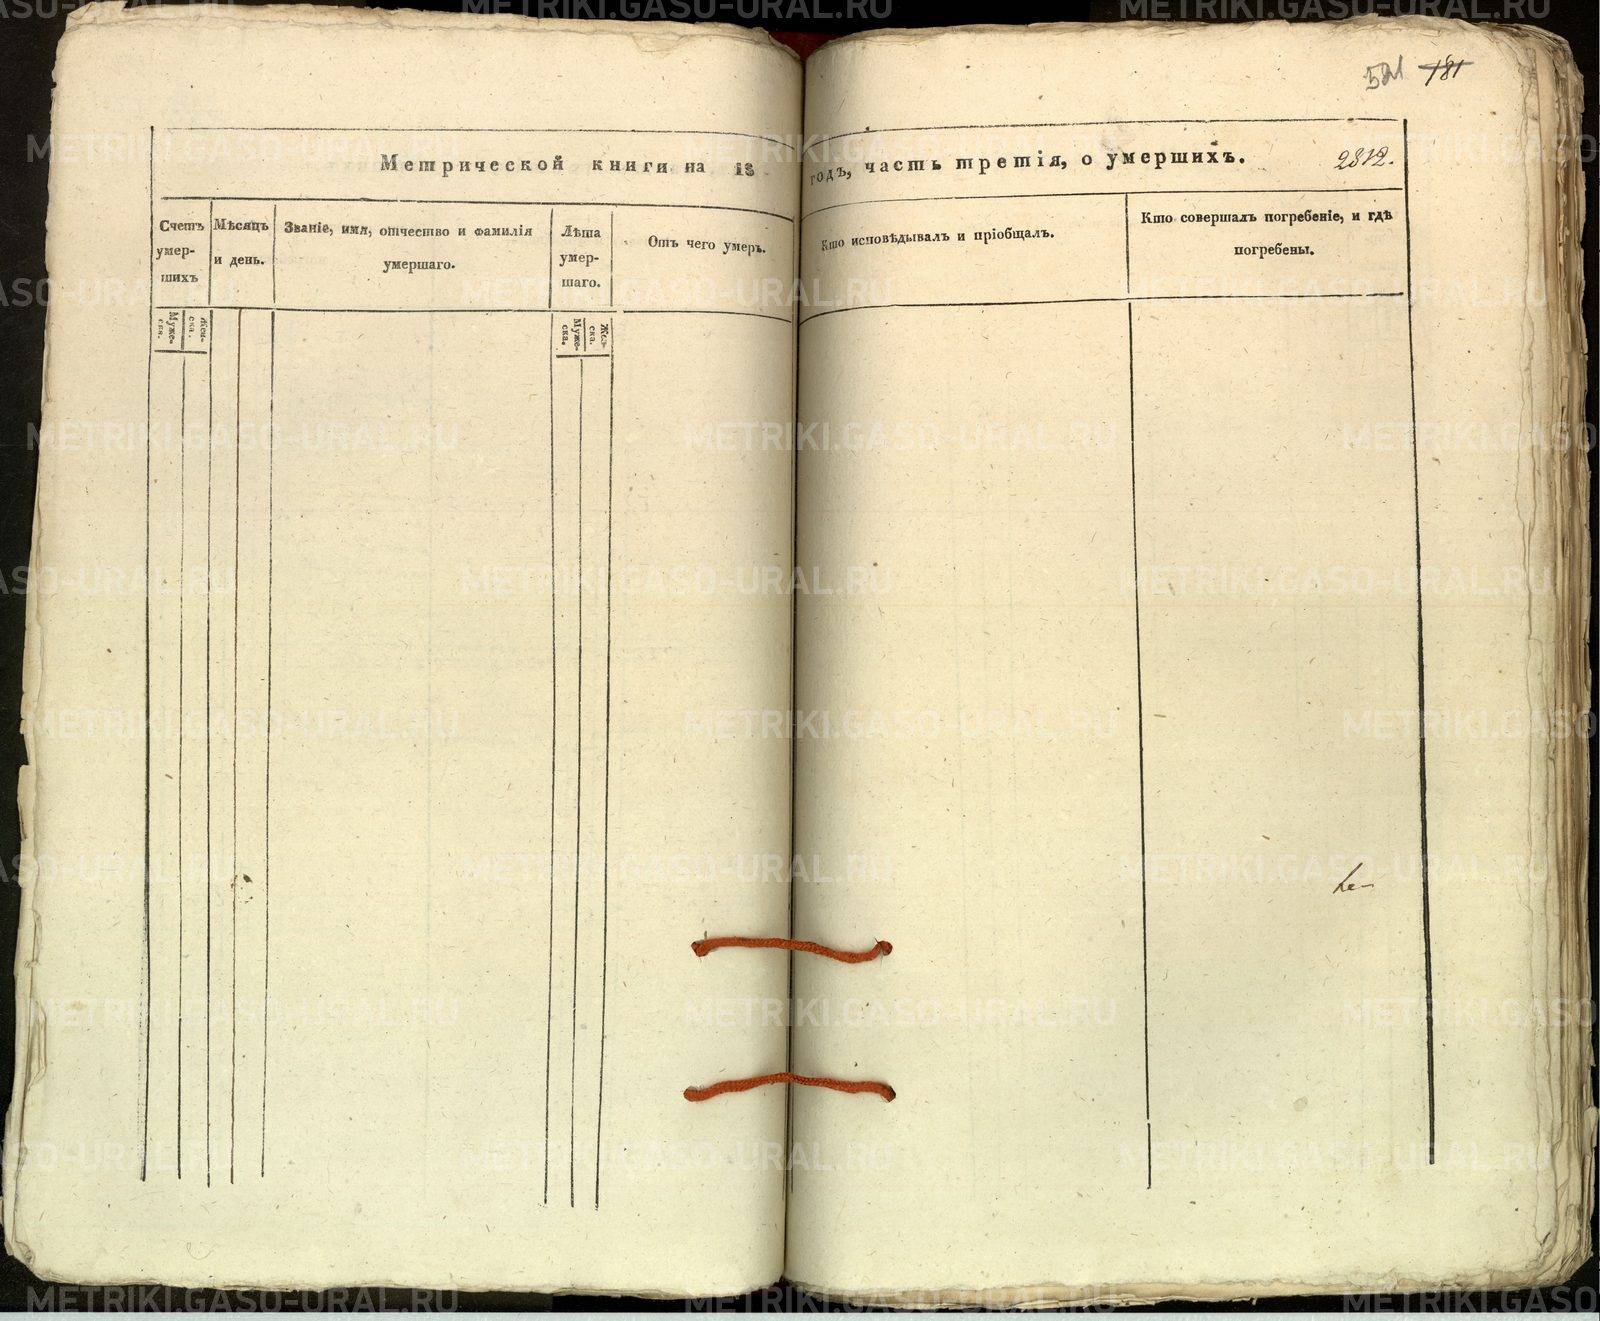 181
Метрической книги на 18
годъ, часть третія, о умершихъ.
2812.
Счетъ
умер-
шихъ
Мѣсяцъ
и день.
Званіе, имя, отчество и фамилія
умершаго.
Лѣта
умер-
шаго.
Отъ чего умеръ.
Кто исповѣдывалъ и пріобщалъ.
Кто совершалъ погребеніе, и гдѣ
погребены.
Муже-
ска.
Жен-
ска.
Муже-
ска.
Жен-
ска.
METRIKI.GASO-URAL.RU